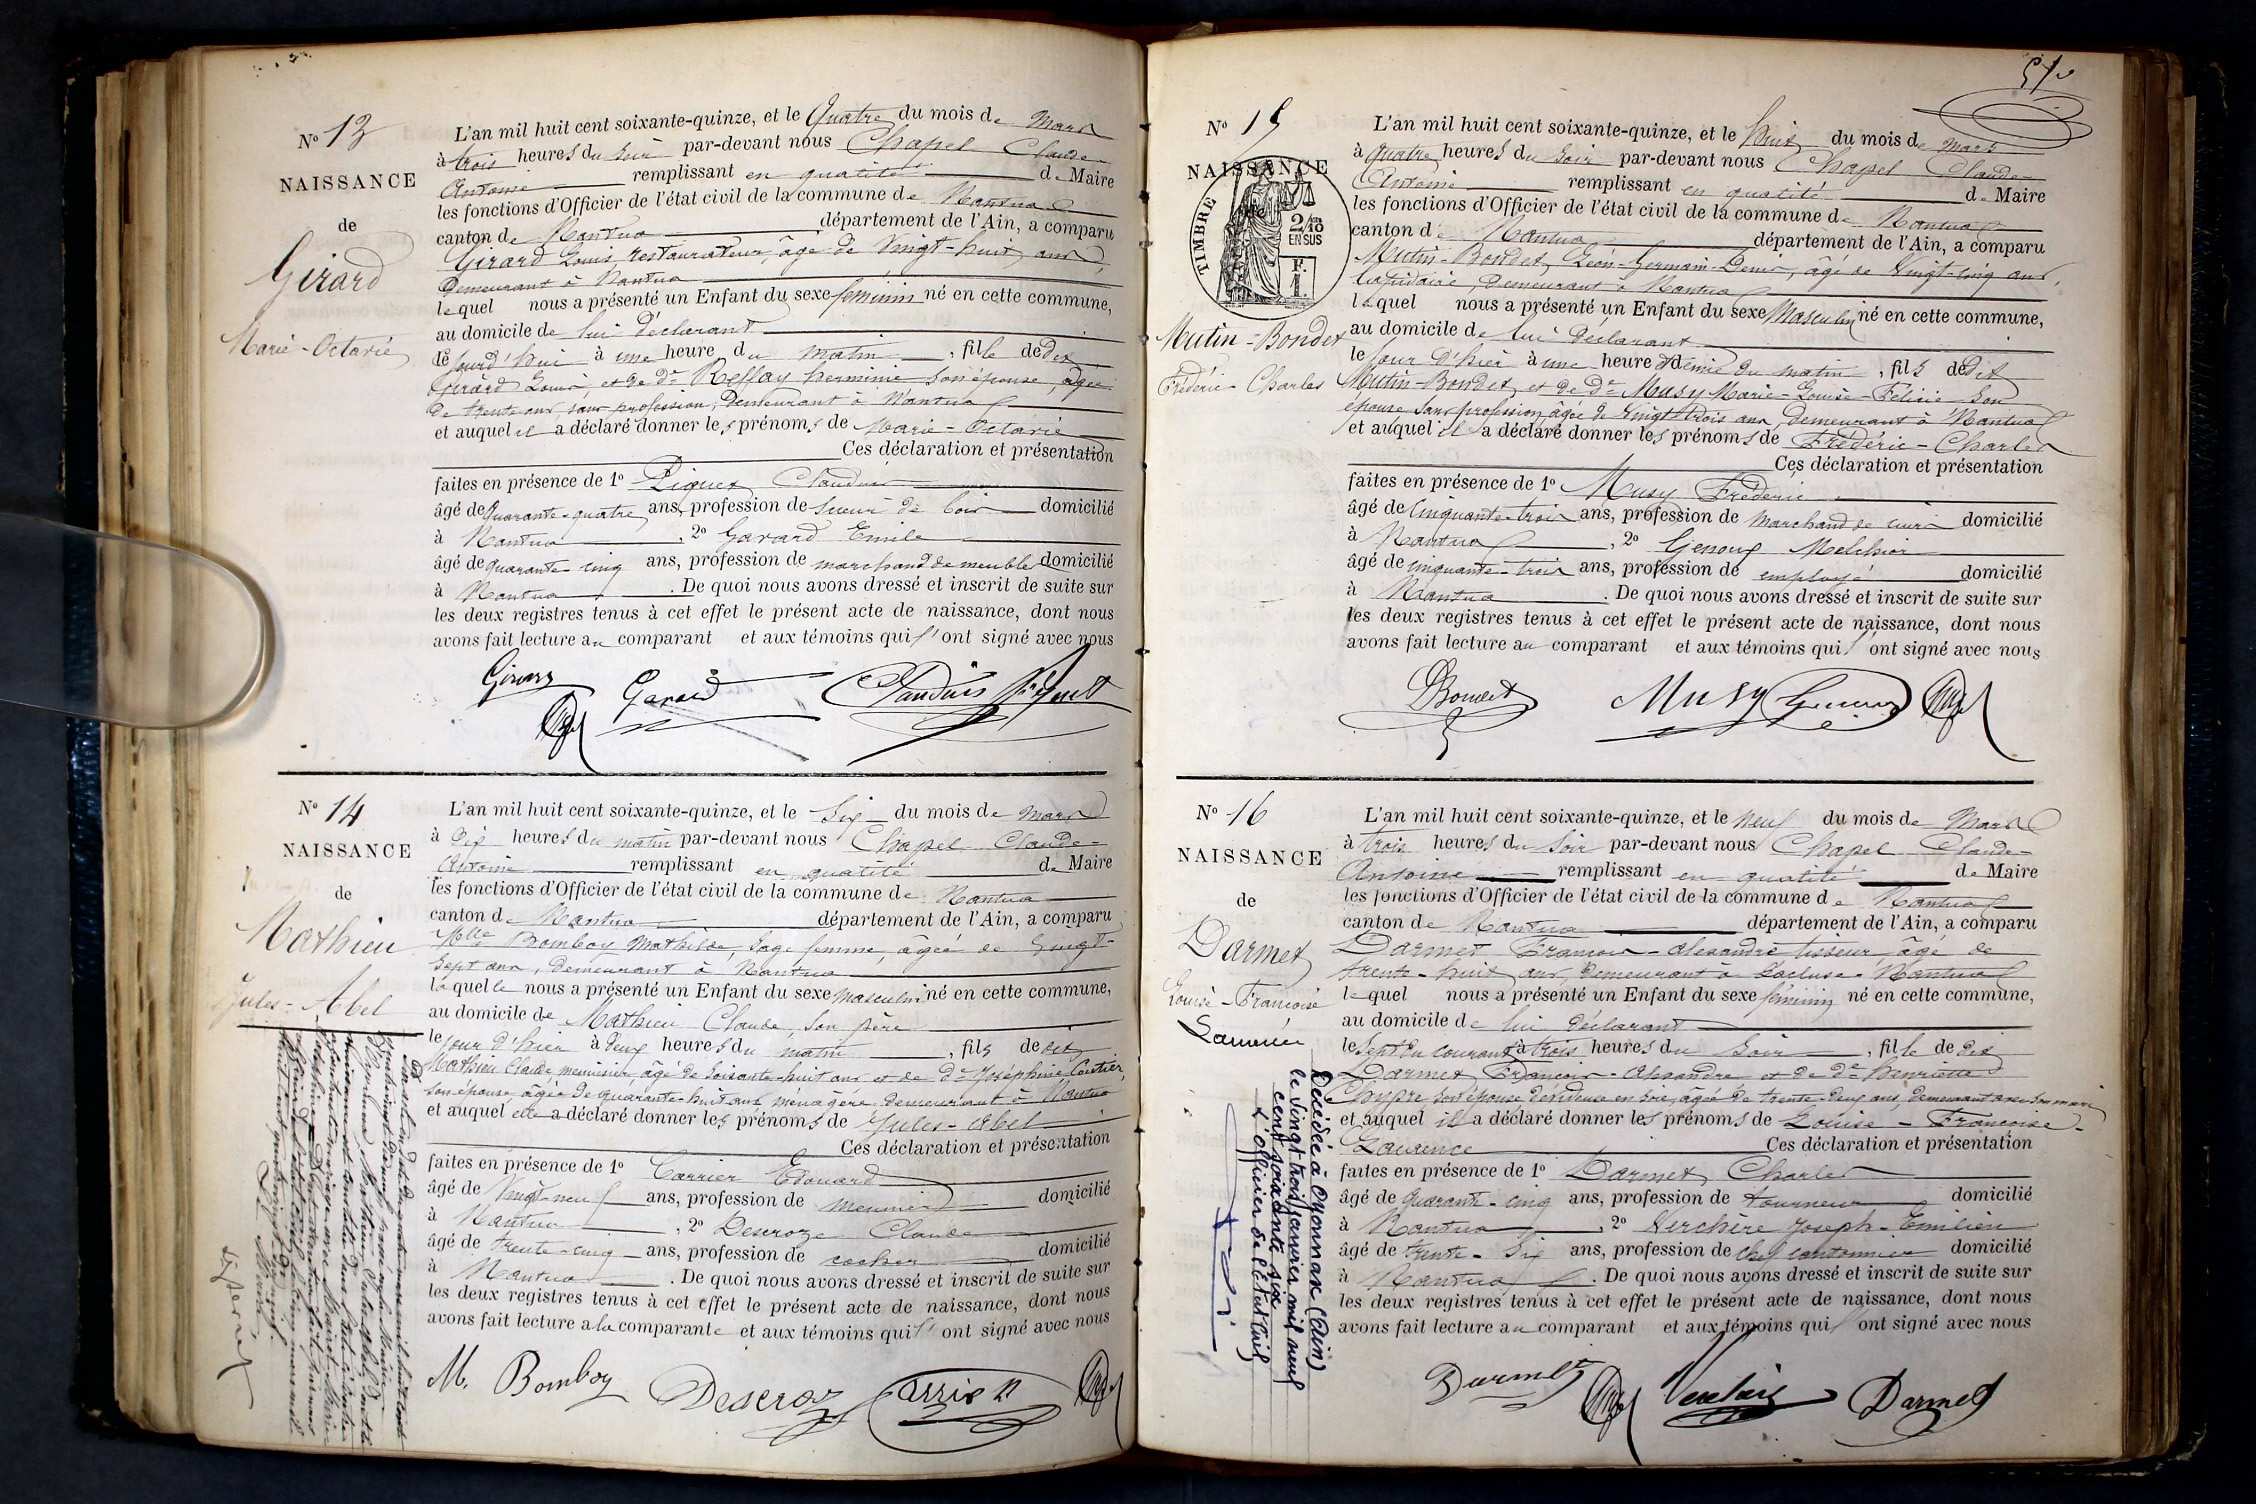 N° 13
NAISSANCE
de
Girard
Marie-Octavie
L'an mil huit cent soixante-quinze, et le Quatre du mois de Mars
à trois heures du soir par-devant nous Chapel Claude-
Antoine remplissant en qualité de Maire
les fonctions d'Officier de l'état civil de la commune de Nantua
canton de Nantua département de l'Ain, a comparu
Girard Louis, restaurateur, âgé de Vingt-huit ans,
Demeurant à Nantua
lequel nous a présenté un Enfant du sexe féminin né en cette commune,
au domicile de lui Déclarant
le jourd'hui à une heure du matin, fille de dit
Girard Louis et de De Reffay herminie son épouse, âgée
de trente ans, sans profession, Demeurant à Nantua
et auquel il a déclaré donner les prénoms de Marie-Octavie
Ces déclaration et présentation
faites en présence de 1° Piquet Claudius
âgé de quarante-quatre ans, profession de scieur de bois domicilié
à Nantua, 2° Gavard Emile
âgé de quarante-cinq ans, profession de marchand de meuble domicilié
à Nantua. De quoi nous avons dressé et inscrit de suite sur
les deux registres tenus à cet effet le présent acte de naissance, dont nous
avons fait lecture au comparant et aux témoins qui ont signé avec nous
Girard Gavard Claudius Piquet
N° 14
NAISSANCE
de
Mathieu
Jules-Abel
L'an mil huit cent soixante-quinze, et le Six du mois de Mars
à Dix heures du matin par-devant nous Chapel Claude-
Antoine remplissant en qualité de Maire
les fonctions d'Officier de l'état civil de la commune de Nantua
canton de Nantua département de l'Ain, a comparu
Melle Bomboy Mathilde, Sage femme, âgée de Vingt-
Sept ans, Demeurant à Nantua
laquelle nous a présenté un Enfant du sexe masculin né en cette commune,
au domicile de Mathieu Claude, son père
le jour d'hier à deux heures du matin, fils de dit
Mathieu Claude menuisier, âgé de soixante-huit ans et de De Joséphine
son épouse âgée de quarante-huit ans ménagère demeurant à Nantua
et auquel elle a déclaré donner les prénoms de Jules-Abel
Ces déclaration et présentation
faites en présence de 1° Carrier Edouard
âgé de Vingt-neuf ans, profession de menuisier domicilié
à Nantua, 2° Descroze Claude
âgé de trente-cinq ans, profession de cocher domicilié
à Nantua. De quoi nous avons dressé et inscrit de suite sur
les deux registres tenus à cet effet le présent acte de naissance, dont nous
avons fait lecture à la comparante et aux témoins qui ont signé avec nous
M. Bomboy Descroz Carrier
51
N° 15
NAISSANCE
TIMBRE
2/10
EN SUS
F.
1.
Mutin-Bondet
Frédéric-Charles
L'an mil huit cent soixante-quinze, et le huit du mois de mars
à quatre heures du soir par-devant nous Chapel Claude-
Antoine remplissant en qualité de Maire
les fonctions d'Officier de l'état civil de la commune de Nantua
canton de Nantua département de l'Ain, a comparu
Mutin-Bondet, Léon-Germain-Denis, âgé de Vingt-cinq ans,
lapidaire, Demeurant à Nantua
lequel nous a présenté un Enfant du sexe Masculin né en cette commune,
au domicile de lui Déclarant
le jour d'hier à une heure & demie du matin, fils de dit
Mutin-Bondet, et de De Musy Marie-Louise-Félicie son
épouse sans profession, âgée de Vingt-trois ans, demeurant à Nantua
et auquel il a déclaré donner les prénoms de Frédéric-Charles
Ces déclaration et présentation
faites en présence de 1° Musy Frédéric
âgé de Cinquante-trois ans, profession de Marchand de cuirs domicilié
à Nantua, 2° Genoux Melchior
âgé de cinquante-trois ans, profession de employé domicilié
à Nantua. De quoi nous avons dressé et inscrit de suite sur
les deux registres tenus à cet effet le présent acte de naissance, dont nous
avons fait lecture au comparant et aux témoins qui ont signé avec nous
Musy
N° 16
NAISSANCE
de
Darmet
Louise-Françoise
Laurence
Décédée à Oyonnax (Ain)
le vingt trois janvier mil neuf
cent soixante six
L'Officier de l'état civil
L'an mil huit cent soixante-quinze, et le neuf du mois de Mars
à trois heures du Soir par-devant nous Chapel Claude-
Antoine remplissant en qualité de Maire
les fonctions d'Officier de l'état civil de la commune de Nantua
canton de Nantua département de l'Ain, a comparu
Darmet François-Alexandre tisseur, âgé de
trente-huit ans, Demeurant à Nantua
lequel nous a présenté un Enfant du sexe féminin né en cette commune,
au domicile de lui déclarant
le Sept du courant à trois heures du Soir, fille de dit
Darmet François-Alexandre et de De henriette
son épouse dévideuse en soie, âgée de trente-deux ans, demeurant avec son mari
et auquel il a déclaré donner les prénoms de Louise-Françoise-
Laurence Ces déclaration et présentation
faites en présence de 1° Darmet Charles
âgé de quarante-cinq ans, profession de tourneur domicilié
à Nantua, 2° Verchère Joseph-Emilien
âgé de trente-six ans, profession de chef cantonnier domicilié
à Nantua. De quoi nous avons dressé et inscrit de suite sur
les deux registres tenus à cet effet le présent acte de naissance, dont nous
avons fait lecture au comparant et aux témoins qui ont signé avec nous
Darmet Darmet